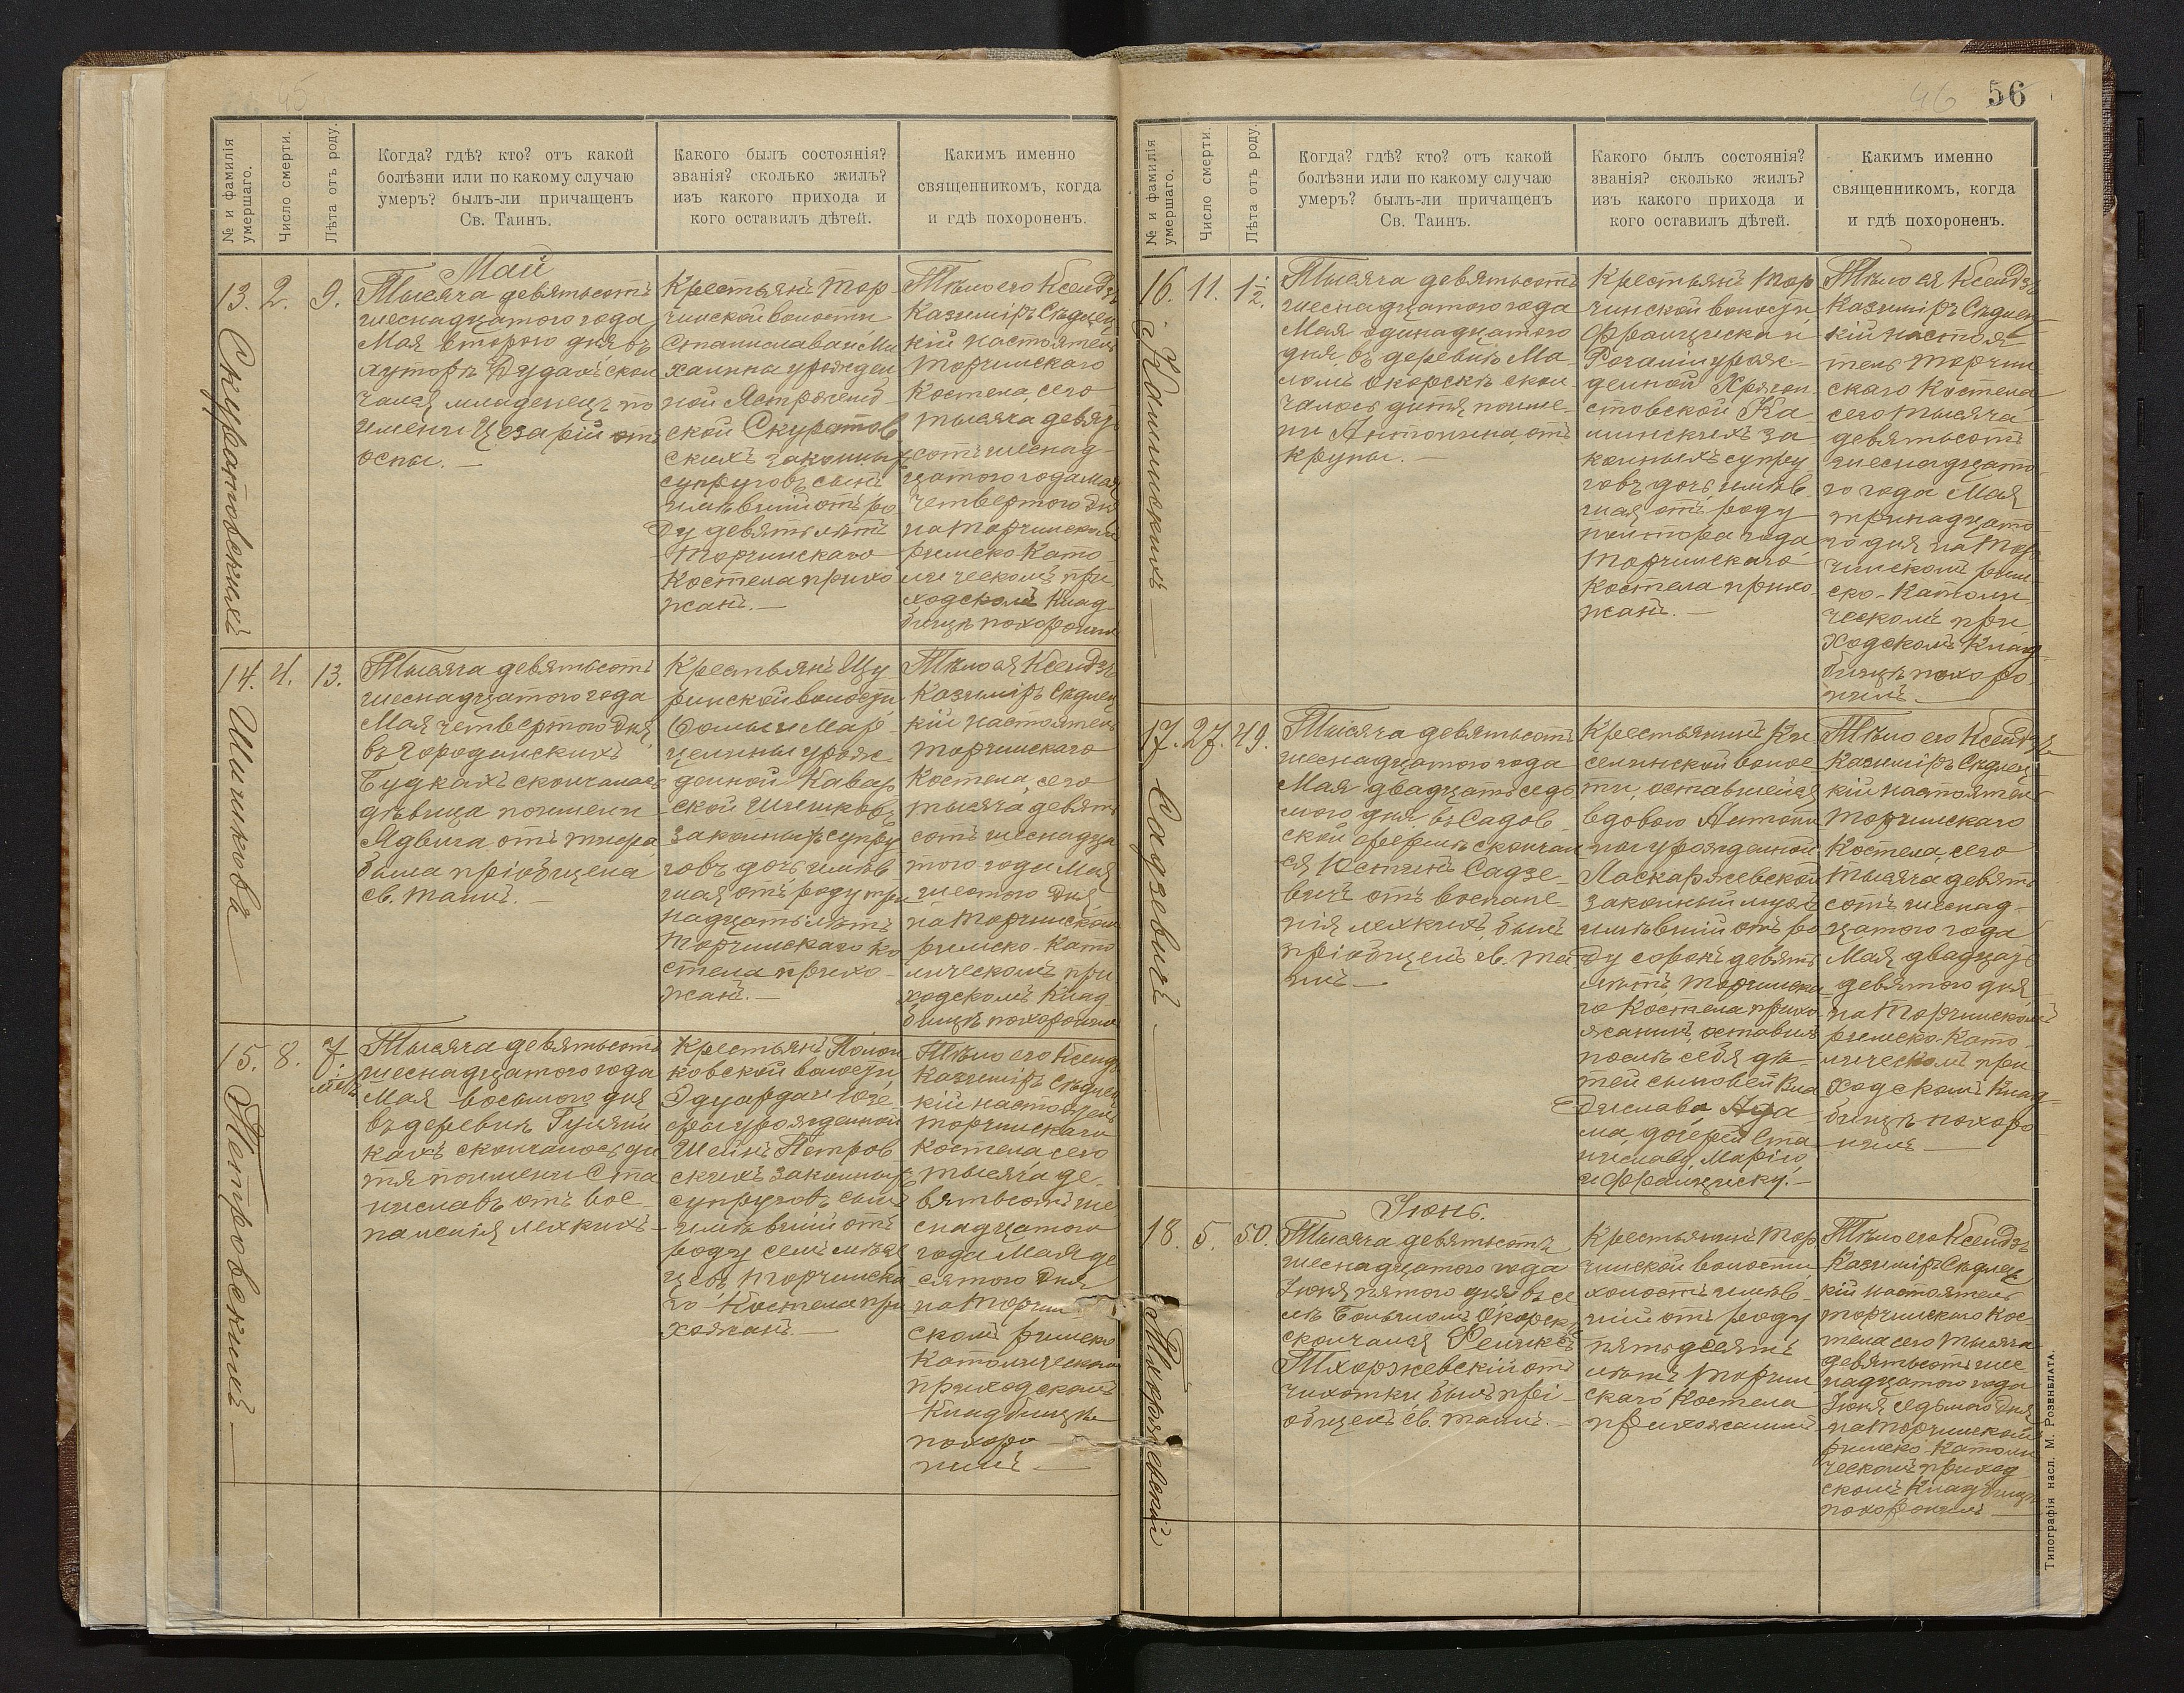 45
№ и фамилія умершаго.
Число смерти.
Лѣта отъ роду.
Когда? гдѣ? кто? отъ какой
болѣзни или по какому случаю
умеръ? былъ-ли причащенъ
Св. Таинъ.
Какого былъ состоянія?
званія? сколько жилъ?
изъ какого прихода и
кого оставилъ дѣтей.
Какимъ именно
священникомъ, когда
и гдѣ похороненъ.
Май
13. Скуратовскій
2.
9.
Тысяча девятьсотъ
шеснадцатого года
Мая второго дня въ
хуторѣ Дудахъ скон
чался младенецъ по
имени Цезарій отъ
оспы. —
Крестьянъ Тор-
чинской волости
Станислава и Ми
халины урожден
ной Ястржемб-
ской Скуратов
скихъ законныхъ
супруговъ сынъ
имѣвшій отъ ро
ду девять лѣтъ
Торчинскаго
Костела прихо
жанъ. —
Тѣло его Ксендзъ
Казимiръ Сѣдлец
кій настоятель
Торчинскаго
Костела, сего
тысяча девять
сотъ шеснад-
цатого года Мая
четвертого дня
на Торчинском
римско-Като
лическомъ при
ходскомъ Клад
бищѣ похоронилъ
14. Шишкова —
4.
13.
Тысяча девятьсотъ
шеснадцатого года
Мая четвертого дня
въ Городинскихъ
Будкахъ скончалась
дѣвица по имени
Ядвига, отъ тифа,
была пріобщена
св. таинъ. —
Крестьянъ Щу
ринской волости
Фомы и Мар
целины урож-
денной Кавар
ской Шишковъ
законныхъ супру
говъ дочь имѣв
шая отъ роду три
надцать лѣтъ
Торчинскаго Ко
стела прихо-
жанъ. —
Тѣло ея Ксендзъ
Казимiръ Сѣдлец
кій настоятель
Торчинскаго
Костела, сего
тысяча девять
сотъ шеснадца
того года Мая
шестого дня
на Торчинском
римско-Като
лическомъ при
ходскомъ Клад
бищѣ похоронилъ
15. Петровскій —
8.
7. мѣс.
Тысяча девятьсотъ
шеснадцатого года
Мая восьмого дня
въ деревнѣ
кахъ скончалось ди
тя по имени Ста
ниславъ отъ вос
паленія лехкихъ —
Крестьянъ Полон
ковской волости,
Эдуарда и Юзе
фы урожденной
Шейнъ Петров
скихъ законныхъ
супруговъ сынъ
имѣвшій отъ
роду семь мѣся
цевъ, Торчинска
го Костела при
хожанъ. —
Тѣло его Ксендзъ
Казимiръ Сѣдлец
кій настоятель
Торчинскаго
Костела сего
тысяча де-
вятьсотъ ше
снадцатого
года Мая де
сятого дня
на Торчин
скомъ римско
Католическомъ
приходскомъ
Кладбищѣ
похоро
нилъ —
46
56
№ и фамилія умершаго.
Число смерти.
Лѣта отъ роду.
Когда? гдѣ? кто? отъ какой
болѣзни или по какому случаю
умеръ? былъ-ли причащенъ
Св. Таинъ.
Какого былъ состоянія?
званія? сколько жилъ?
изъ какого прихода и
кого оставилъ дѣтей.
Какимъ именно
священникомъ, когда
и гдѣ похороненъ.
16. Калинскихъ —
11.
1½.
Тысяча девятьсотъ
шеснадцатого года
Мая одинадцатого
дня, въ деревнѣ Ма-
ломъ Окорскѣ скон-
чалось дитя по име-
ни Антонина, отъ
крупы. —
Крестьянъ Тор
чинской волости,
Францишка и
Розаліи урож-
денной
стовской Ка
линскихъ за
конныхъ супру
говъ дочь имѣв
шая отъ роду
полтора года,
Торчинскаго
Костела прихо
жанъ. —
Тѣло ея Ксендзъ
Казимiръ Сѣдлец
кій настоя-
тель Торчин
скаго Костела
сего тысяча
девятьсотъ
шеснадцато
го года Мая
тринадцато
го дня на Тор
чинскомъ рим
ско-Католи
ческомъ при
ходскомъ Клад-
бищѣ похоро
нилъ —
17. Садзевичъ —
27.
49.
Тысяча девятьсотъ
шеснадцатого года
Мая двадцать седь
мого дня въ Садов
ской фермѣ скончал
ся Юстинъ Садзе-
вичъ отъ воспале-
нія лехкихъ, былъ
пріобщенъ св. та
инъ —
Крестьянинъ Ки
селинской волос
ти, оставшейся
вдовою Антони
ны урожденной
Ласкаржевской
законный мужъ
имѣвшій отъ ро
ду сорокъ девять
лѣтъ, Торчинска
го Костела прихо
жанинъ, оставилъ
послѣ себя дѣ-
тей сыновей Вла
дислава, Ада
ма, дочерей Ста
ниславу, Марію
и Францишку. —
Тѣло его Ксендзъ
Казимiръ Сѣдлец
кій настоятель
Торчинскаго
Костела, сего
тысяча девять
сотъ шеснад-
цатого года
Мая двадцать
девятого дня
на Торчинскомъ
римско-Като
лическомъ при
ходскомъ Клад-
бищѣ похоро
нилъ —
Іюнь.
18. Тхоржевскій
5.
50.
Тысяча девятьсотъ
шеснадцатого года
Іюня пятого дня въ се
лѣ Большомъ Окорскѣ
скончался Феликсъ
Тхоржевскій отъ
чихотки, былъ прі-
общенъ св. таинъ. —
Крестьянинъ Тор
чинской волости,
холостъ имѣв-
шій отъ роду
пятьдесятъ
лѣтъ Торчин
скаго Костела
прихожанинъ
Тѣло его Ксендзъ
Казимiръ Сѣдлец
кій настоятель
Торчинскаго Кос-
тела сего тысяча
девятьсотъ шес
надцатого года
Іюня седьмого дня
на Торчинскомъ
римско-Католи
ческомъ приход
скомъ Кладбищѣ
похоронилъ —
Типографія насл. М. Розенблата.